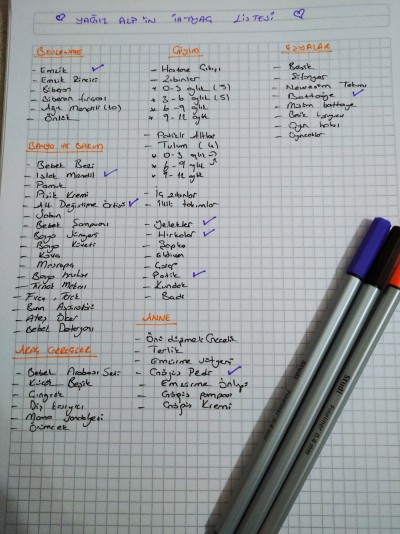 YAĞIZ ALP'İN İHTİYAÇ LİSTESİ
BESLENME
- Emzik ✓
- Emzik Zinciri
- Biberon
- Biberon fırçası
- Ağız Mendili (10)
- Önlük
BANYO VE BAKIM
- Bebek Bezi
- Islak Mendil ✓
- Pamuk
- Pişik Kremi
- Alt Değiştirme Örtüsü ✓
- Sabun
- Bebek Şampuanı
- Banyo Süngeri
- Banyo Küveti
- Kova
- Maşrapa
- Banyo havlusu
- Tırnak Makası
- Fırça, Tarak
- Burun Aspiratörü
- Ateş Ölçer
- Bebek Deterjanı
ARAÇ GEREÇLER
- Bebek Arabası Seti
- Küçük Beşik
- Çıngırak
- Diş kaşıyıcı
- Mama Sandalyesi
- Örümcek
GİYİM
- Hastane Çıkışı
- Zıbınlar
* 0-3 aylık (5)
* 3-6 aylık (5)
* 6-9 aylık
* 9-12 aylık
- Patikli Altlar
- Tulum (4)
* 0-3 aylık
* 6-9 aylık
* 9-12 aylık
- İç zıbınlar
- İkili takımlar
- Yelekler ✓
- Hırkalar ✓
- Şapka
- Eldiven
- Çorap
- Patik ✓
- Kundak
- Badi
ANNE
- Önü düğmeli Gecelik
- Terlik
- Emzirme sütyeni
- Göğüs Pedi ✓
- Emzirme Önlüğü
- Göğüs pompası
- Göğüs Kremi
EŞYALAR
- Beşik
- Şifonyer
- Nevresim Takımı
- Battaniye ✓
- Mama battaniye
- Oyun halısı
- Oyuncaklar